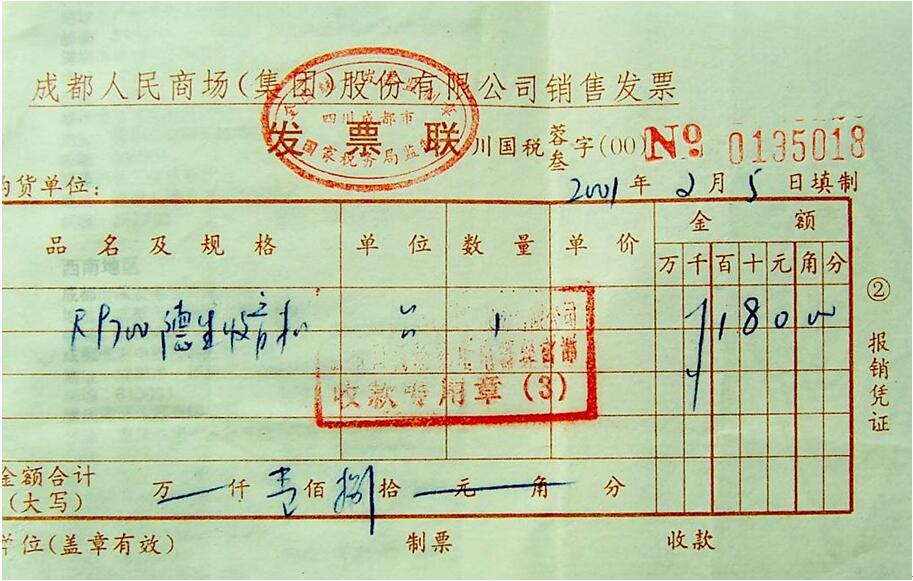 成都人民商场(集团)股份有限公司销售发票
四川成都市
国家税务局监
发票联
川国税蓉叁字(00)№ 0195018
购货单位:
2001年2月5日填制
品名及规格 单位 数量 单价 金额
万千百十元角分
德生收音机 1 18000
收款专用章(3)
②报销凭证
金额合计(大写) 万仟壹佰捌拾元角分
单位(盖章有效) 制票 收款